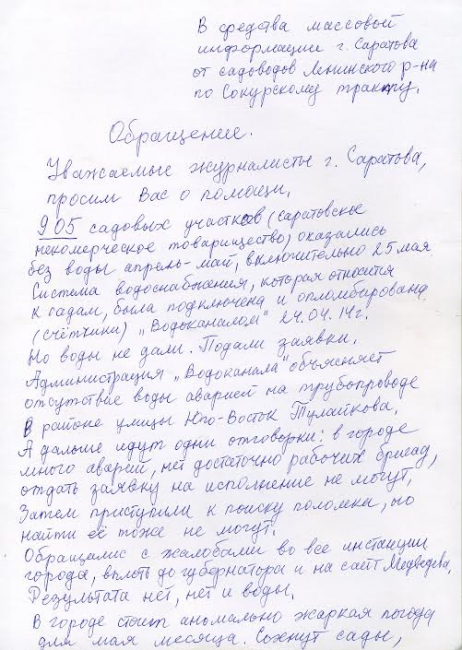 В средства массовой
информации г. Саратова
от садоводов Ленинского р-на
по Сокурскому тракту.
Обращение.
Уважаемые журналисты г. Саратова,
просим Вас о помощи.
905 садовых участков (Саратовское
некомерческое товарищество) оказались
без воды апрель-май, включительно 25 мая
Система водоснабжения, которая относится
к садам, была подключена и опломбирована
(счётчики) „Водоканалом" 24.04.14г.
Но воды не дали. Подали заявки.
Администрация „Водоканала" объясняет
отсутствие воды аварией на трубопроводе
в районе улицы Юго-Восток Тулайкова.
А дальше идут одни отговорки: в городе
много аварий, нет достаточно рабочих бригад,
отдать заявку на исполнение не могут,
Затем приступили к поиску поломки, но
найти её тоже не могут.
Обращались с жалобами во все инстанции
города, вплоть до губернатора и на сайт Медведева.
Результата нет, нет и воды.
В городе стоит аномально жаркая погода
для мая месяца. Сохнут сады,